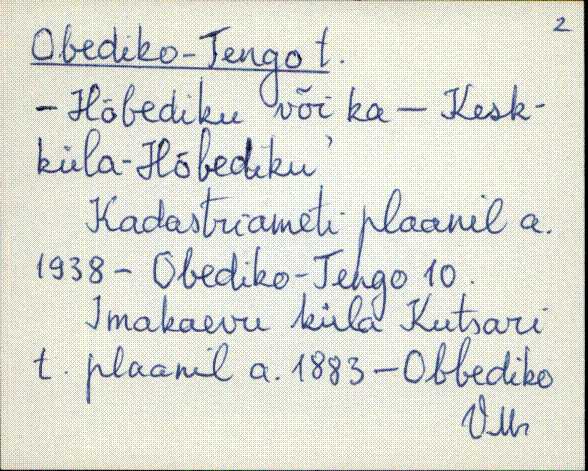 2
Obediko-Tengo t.
- Hõbediku või ka – Kesk-
küla-Hõbediku'
Kadastriameti plaanil a.
1938 - Obediko-Tengo 10.
Imakaevu küla Kutsari
t. plaanil a. 1883 - Obbediko
VMr